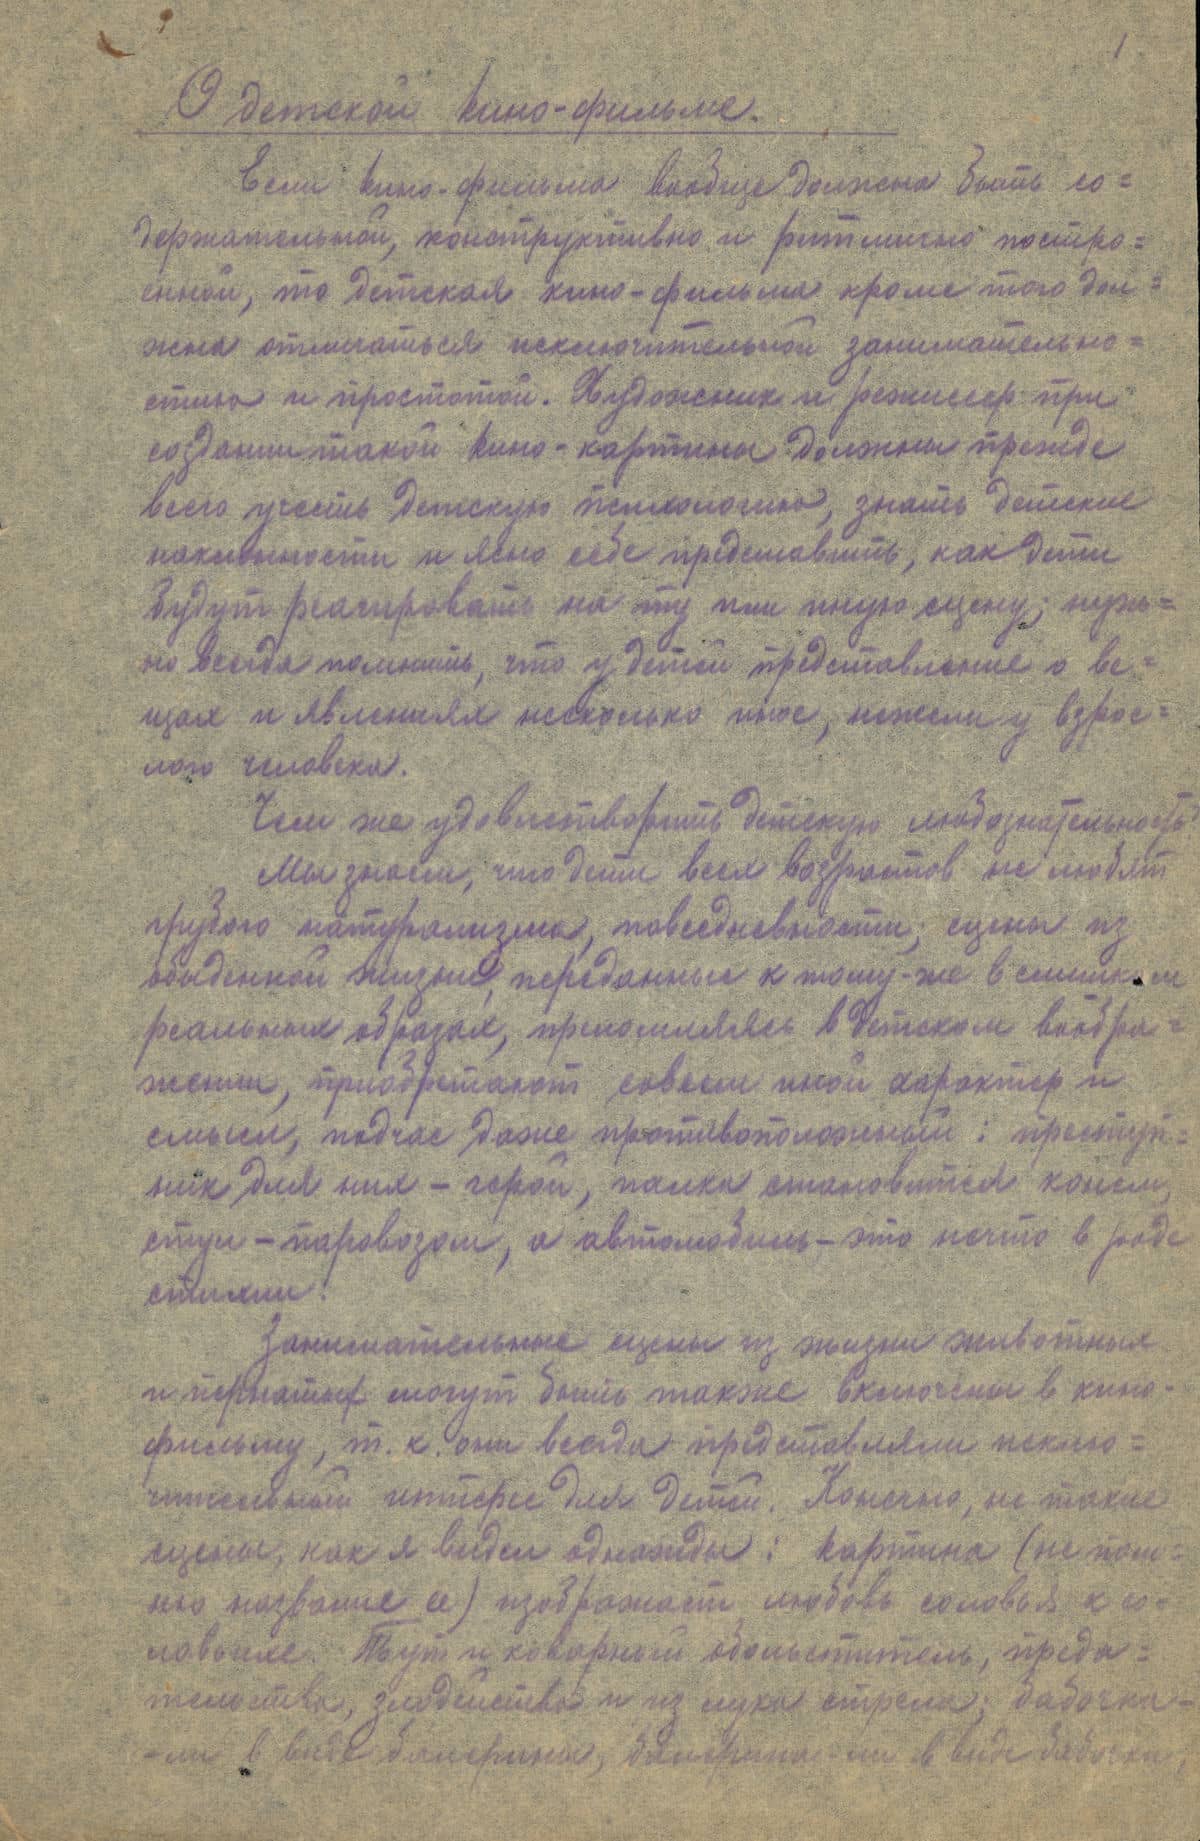 1
О детской кино-фильме.
Если кино-фильма вообще должна быть со=
держательной, конструктивно и ритмично построе=
енной, то детская кино-фильма кроме того дол=
жна отличаться исключительной занимательно=
стью и простотой. Художник и режиссер при
создании такой кино-картины должны прежде
всего учесть детскую психологию, знать детские
наклонности и ясно себе представить, как дети
будут реагировать на ту или иную сцену; нуж=
но всегда помнить, что у детей представление о ве=
щах и явлениях несколько иное, нежели у взрос=
лого человека.
Чем же удовлетворить детскую любознательность?
Мы знаем, что дети всех возрастов не любят
грубого натурализма, повседневности; сцены из
обыденной жизни, переданные к тому-же в слишком
реальных образах, преломляясь в детском вообра=
жении, приобретают совсем иной характер и
смысл, подчас даже противоположный: преступ=
ник для них – герой, палка становится конем,
стул – паровозом, а автомобиль – это нечто в роде
стихии!
Занимательные сцены из жизни животных
и пернатых могут быть также включены в кино-
фильму, т. к. они всегда представляли исклю=
чительный интерес для детей. Конечно, не такие
сцены, как я видел однажды: картина (не пом=
ню название ее) изображает любовь соловья к со=
ловьихе. Тут и коварный обольститель, преда=
тельство, злодейство и из лука стрела; бабочка-
-ли в виде балерины, балерина-ли в виде бабочки,